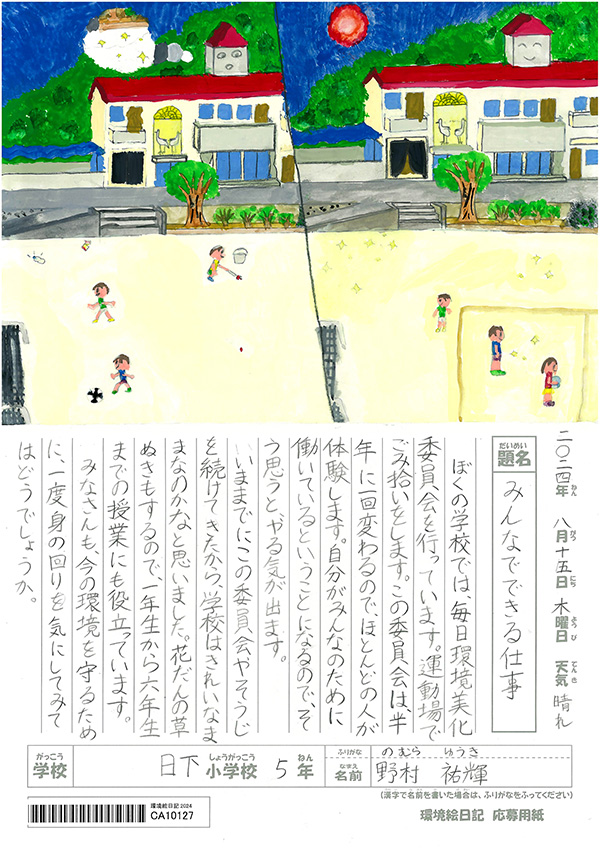 二〇二四年 八月十五日 木曜日 天気 晴れ
ねん がつ にち ようび てんき
だいめい
題名 みんなでできる仕事
ぼくの学校では、毎日環境美化
委員会を行っています。運動場で
ごみ拾いをします。この委員会は、半
年に一回変わるので、ほとんどの人が
体験します。自分がみんなのために
働いているということになるので、そ
う思うとやる気が出ます。
いままでにこの委員会やそうじ
を続けてきたから、学校はきれいなま
まなのかなと思いました。花だんの草
ぬきもするので、一年生から六年生
までの授業にも役立っています。
みなさんも、今の環境を守るため
に、一度身の回りを気にしてみて
はどうでしょうか。
がっこう しょうがっこう ねん ふりがな のむら ゆうき
学校 日下 小学校 5 年 なまえ 名前 野村 祐輝
(漢字で名前を書いた場合は、ふりがなをふってください)
環境絵日記2024
CA10127
環境絵日記 応募用紙